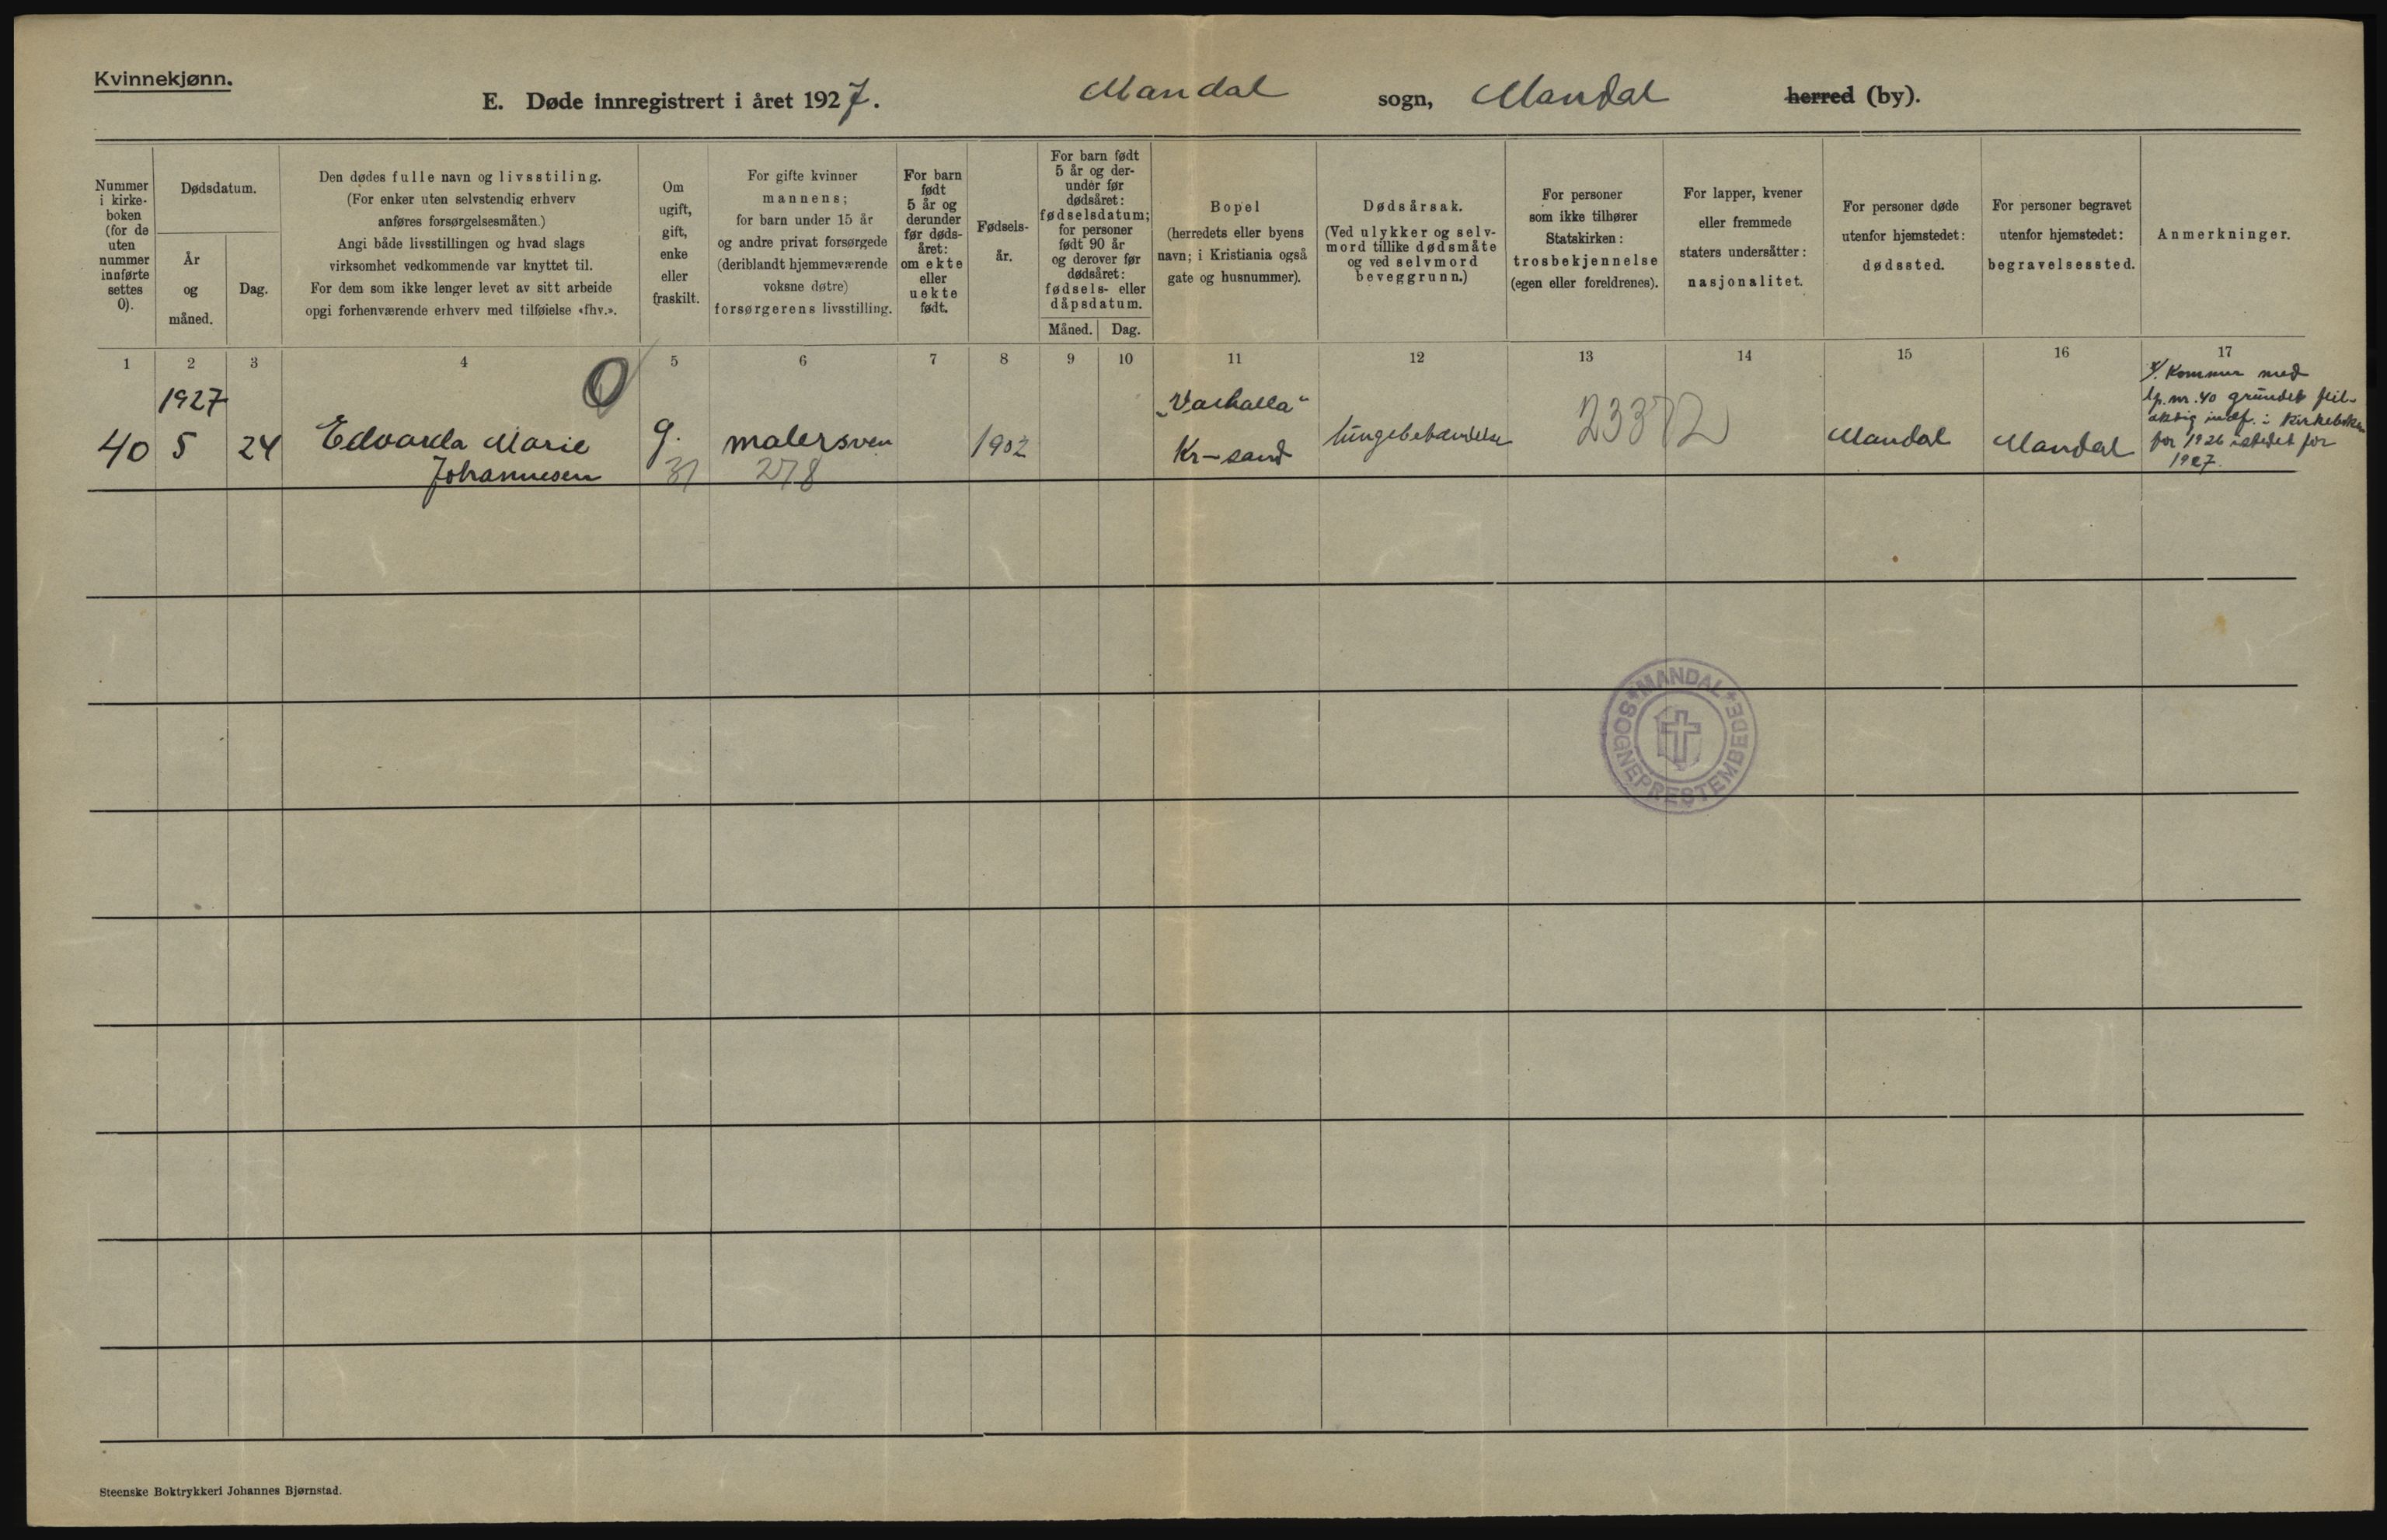 Kvinnekjønn.
E. Døde innregistrert i året 1927. Mandal sogn, Mandal herred (by).
Nummer
i kirke-
boken
(for de
uten
nummer
innførte
settes
0).
Dødsdatum.
År
og
måned.
Dag.
Den dødes fulle navn og livsstiling.
(For enker uten selvstendig erhverv
anføres forsørgelsesmåten.)
Angi både livsstillingen og hvad slags
virksomhet vedkommende var knyttet til.
For dem som ikke lenger levet av sitt arbeide
opgi forhenværende erhverv med tilføielse «fhv.».
Om
ugift,
gift,
enke
eller
fraskilt.
For gifte kvinner
mannens;
for barn under 15 år
og andre privat forsørgede
(deriblandt hjemmeværende
voksne døtre)
forsørgerens livsstilling.
For barn
født
5 år og
derunder
før døds-
året:
om ekte
eller
uekte
født.
Fødsels-
år.
For barn født
5 år og der-
under før
dødsåret:
fødselsdatum;
for personer
født 90 år
og derover før
dødsåret:
fødsels- eller
dåpsdatum.
Måned. Dag.
Bopel
(herredets eller byens
navn; i Kristiania også
gate og husnummer).
Dødsårsak.
(Ved ulykker og selv-
mord tillike dødsmåte
og ved selvmord
beveggrunn.)
For personer
som ikke tilhører
Statskirken:
trosbekjennelse
(egen eller foreldrenes).
For lapper, kvener
eller fremmede
staters undersåtter:
nasjonalitet.
For personer døde
utenfor hjemstedet:
dødssted.
For personer begravet
utenfor hjemstedet:
begravelsessted.
Anmerkninger.
1 2 3 4 5 6 7 8 9 10 11 12 13 14 15 16 17
1927
40 5 24
Edvarda Marie
Johannesen
0
g.
31
malersven
278
1902
„Valhalla“
Kr-sand
lungebetændelse
23372
Mandal
Mandal
Kommer med
lp. nr. 40 grundet feil-
aktig indf. i Kirkeboken
for 1926 istedet for
1927.
MANDAL
SOGNEPRESTEMBEDE
Steenske Boktrykkeri Johannes Bjørnstad.